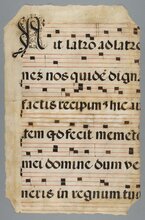 Ait latro ad latro
nez nos quidē dign
factis recipim hic au
tem qd fecit memeto
mei domine dum ve
neris in regnum tuū